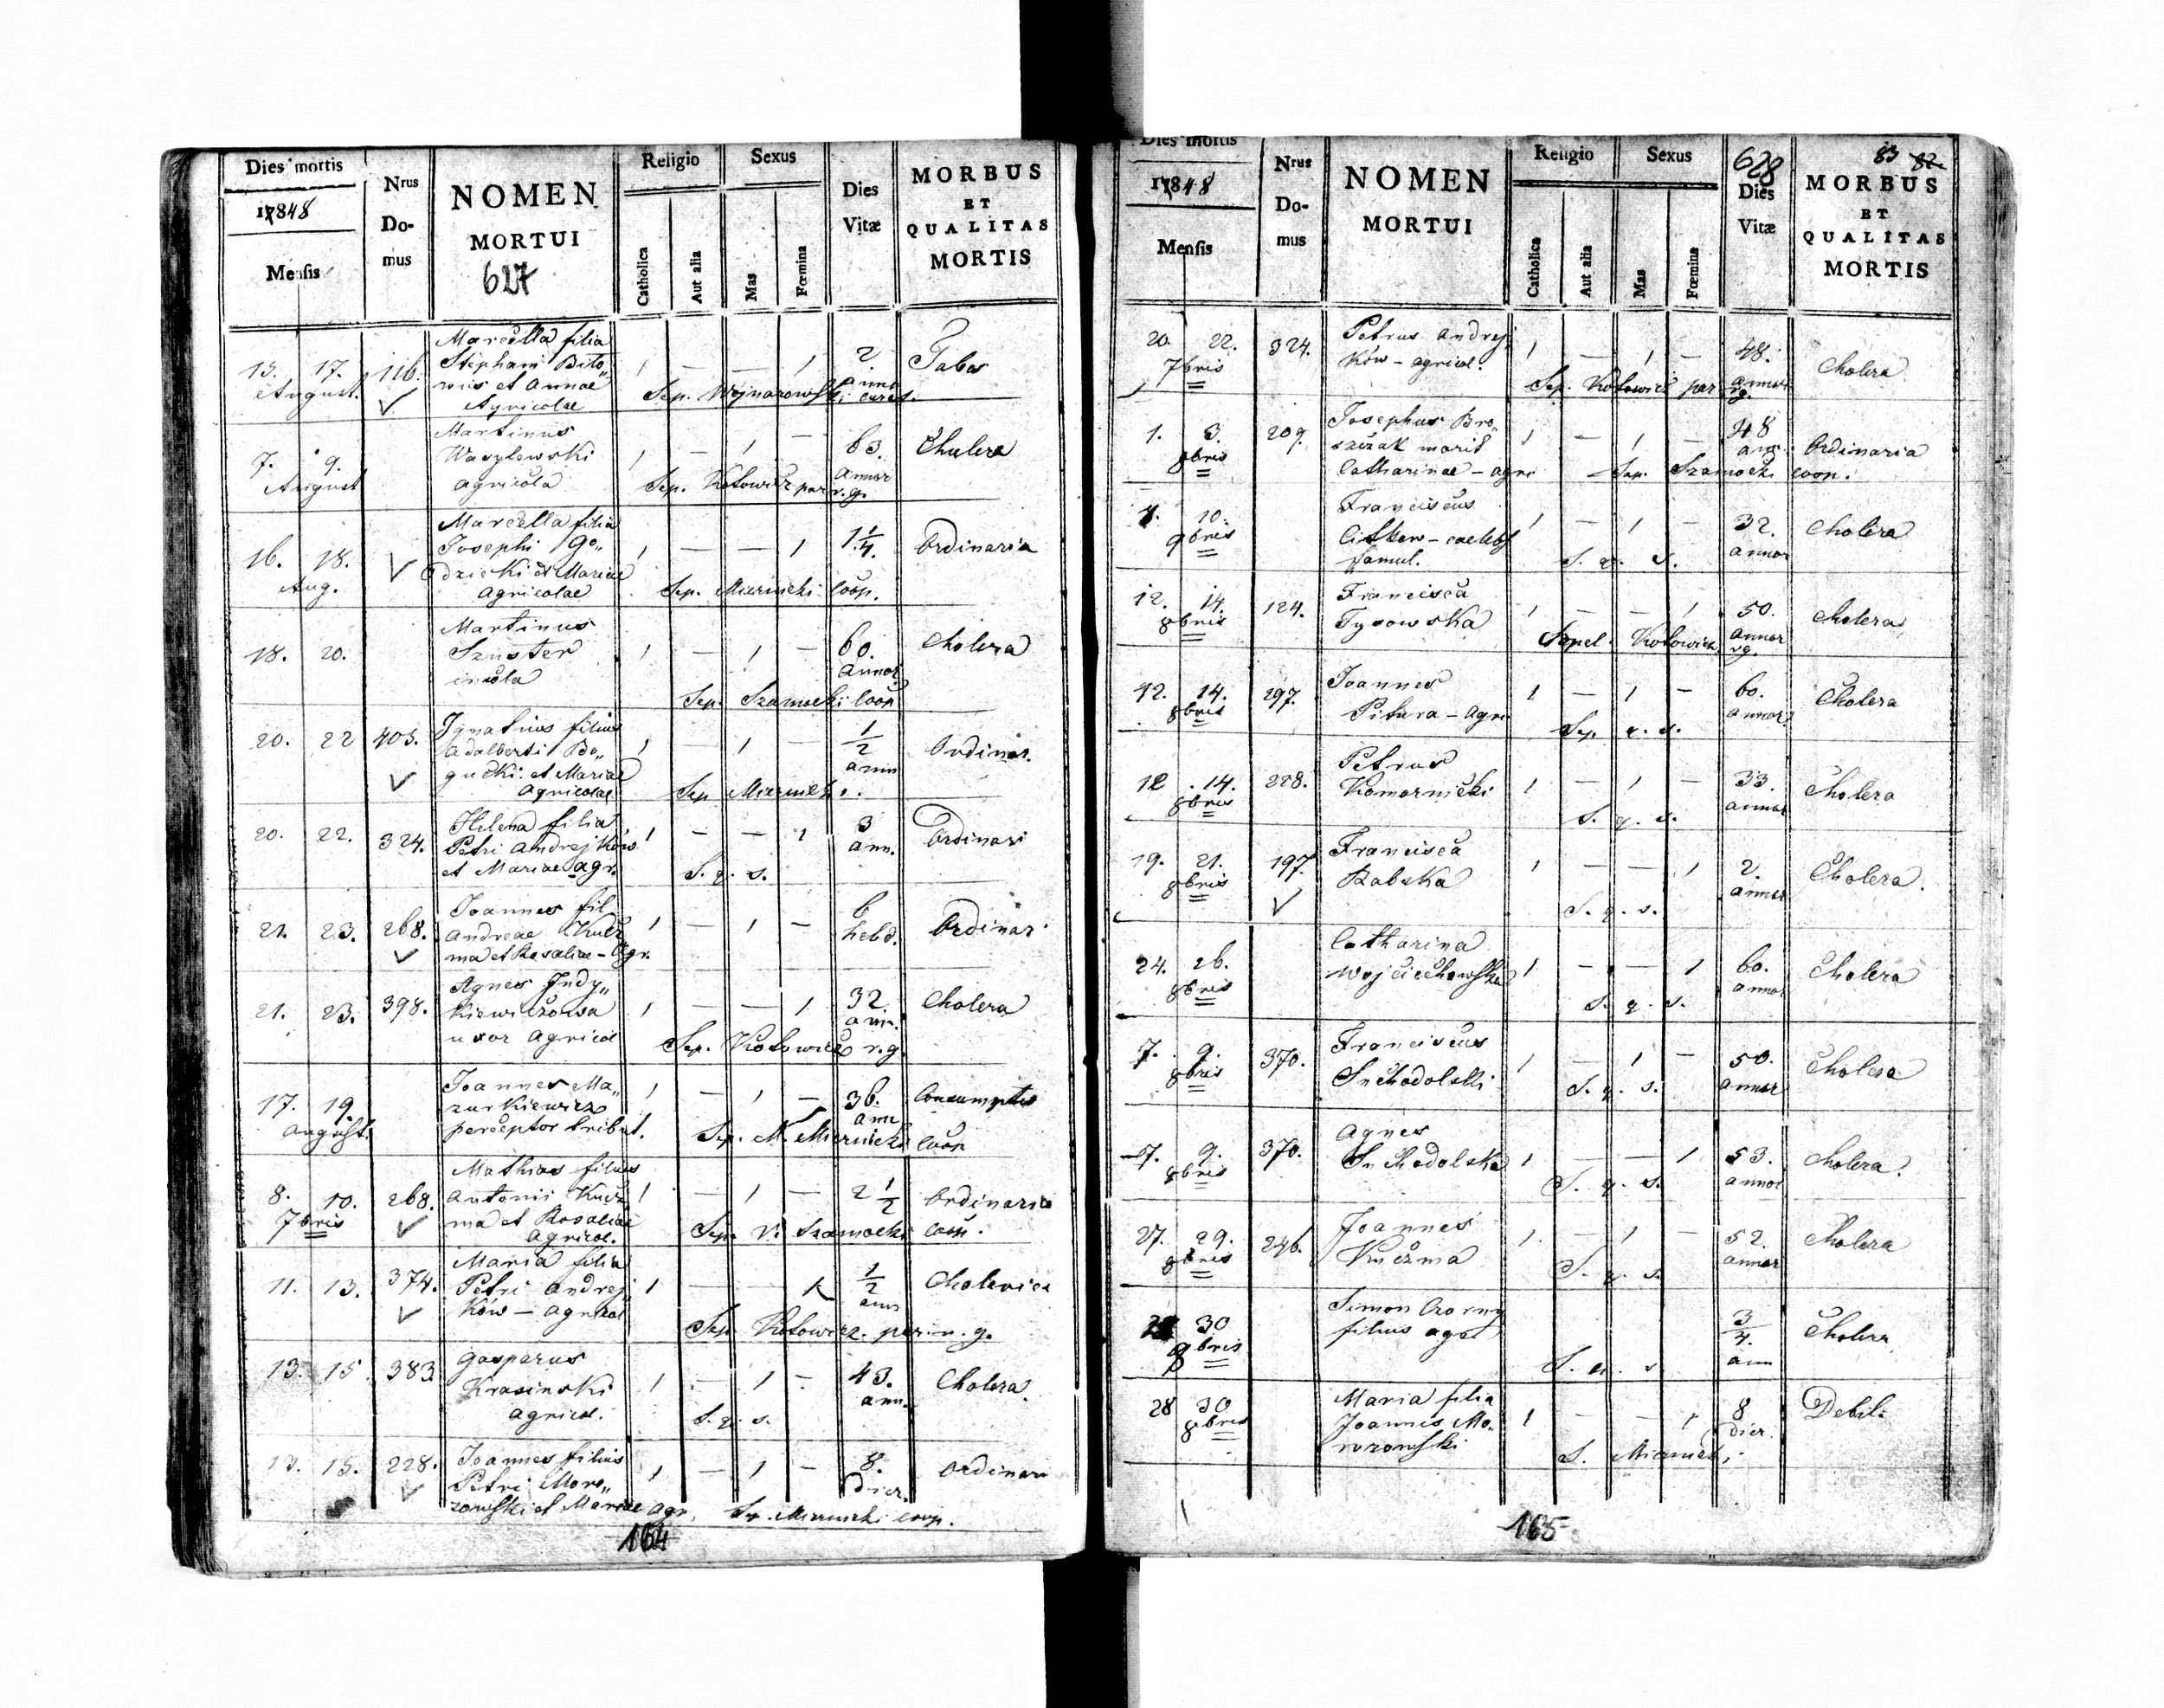 Dies mortis
1848
Mensis
Nrus
Do-
mus
NOMEN
MORTUI
627
Religio
Catholica
Aut alia
Sexus
Mas
Fœmina
Dies
Vitæ
MORBUS
ET
QUALITAS
MORTIS
Marcella filia
15. 17. 116. Stephani Bito„ 1 — — 1 2. Tabes
August. rowis et Annae anno
Agricolae Sep. Wojnarowski
Martinus
7. 9. Wasylewski 1 — 1 — 63. Cholera
August agricola annor
Sep. Kotowicz par. r. g.
Marcella filia
16. 18. Josephi Go„ 1 — — 1 1 1/4. Ordinaria
Aug. dzicki et Mariae
agricolae Sep. Miernicki coop.
Martinus
18. 20. Szuster 1 — 1 — 60. Cholera
incola annor
Sep. Szamocki coop
Ignatius filius
20. 22 403. Adalberti Bo„ 1 — 1 — 1/2 Ordinar.
gucki et Mariae ann
agricolae Sep Miernicki
Helena filia
20. 22. 324. Petri Andrejków 1 — — 1 3 Ordinari
et Mariae agr. ann.
S. q. s.
Joannes fil
21. 23. 268. Andreae Kucz 1 — 1 — 6 Ordinar
ma et Rosaliae - Agr. hebd.
Agnes Indy„
21. 23. 398. kiewiczowa 1 — — 1 32 Cholera
uxor agricol ann.
Sep. Kotowicz r. g.
Joannes Ma„
17. 19. zurkiewicz 1 — 1 — 36. Consumptio
August. perceptor tribut. ann
Sep. N. Miernicki coop
Mathias filius
8. 10. 268. Antonii Kucz 1 — 1 — 2 1/2 Ordinaria
7bris ma et Rosaliae
agricol. Sep. V. Szamocki coop.
Maria filia
11. 13. 374. Petri Andrej 1 — — 1 1/2 Cholerica
ków — agricol ann
Sep. Kotowicz. par. r. g.
Gasparus
13. 15 383 Krasinski 1 — 1 — 43. Cholera
agricol. ann.
S. q. s.
13. 15. 228. Joannes filius 1 — 1 — 8. Ordinari
Petri Moro„ dier.
zowski et Mariae agr. Sep. Miernicki coop.
164
Dies mortis
1848
Mensis
Nrus
Do-
mus
NOMEN
MORTUI
Religio
Catholica
Aut alia
Sexus
Mas
Fœmina
628
Dies
Vitæ
83 82.
MORBUS
ET
QUALITAS
MORTIS
20. 22. 324. Petrus Andrej 1 — 1 — 48. Cholera
7bris ków — agricol. annor
Sep. Kotowicz par r. g.
1. 3. 209. Josephus Bro„ 1 — 1 — 48 Ordinaria
8bris szczak marit ann
Catharinae — agri Sep. Szamocki coop.
Franciscus
8. 10. Citkow — caelebs 1 — 1 — 32. Cholera
9bris famul. annor
S. q. s.
12. 14. 124. Francisca 1 — — 1 50. Cholera
8bris Tysowska annor
Sepel. Kotowicz r. g.
12. 14. 297. Joannes 1 — 1 — 60. Cholera
8bris Pitura — Agri annor
Sep q. s.
Petrus
12. 14. 228. Komarnicki 1 — 1 — 33. Cholera
8bris annor
S. q. s.
19. 21. 197. Francisca 1 — 1 2. Cholera.
8bris Babska annor
S. q. s.
Catharina
24. 26. Wojciechowska 1 — — 1 60. Cholera
8bris annor
S. q. s.
7. 9. 370. Franciscus 1 — 1 — 50. Cholera
8bris Suchodolski annor
S. q. s.
Agnes
7. 9. 370. Suchodolska 1 — — 1 53. Cholera.
8bris annor
S. q. s.
27. 29. 246. Joannes 1. — 1 — 52. Cholera
8bris Kuczma annor
S. q. s.
30 Simon Czorny 3/4. Cholera
8bris filius agri ann
S. q. s
28 30 Maria filia 1 — — 1 8 Debil:
8bris Joannis Mo„ dier
rozowski
S. Miernicki
165